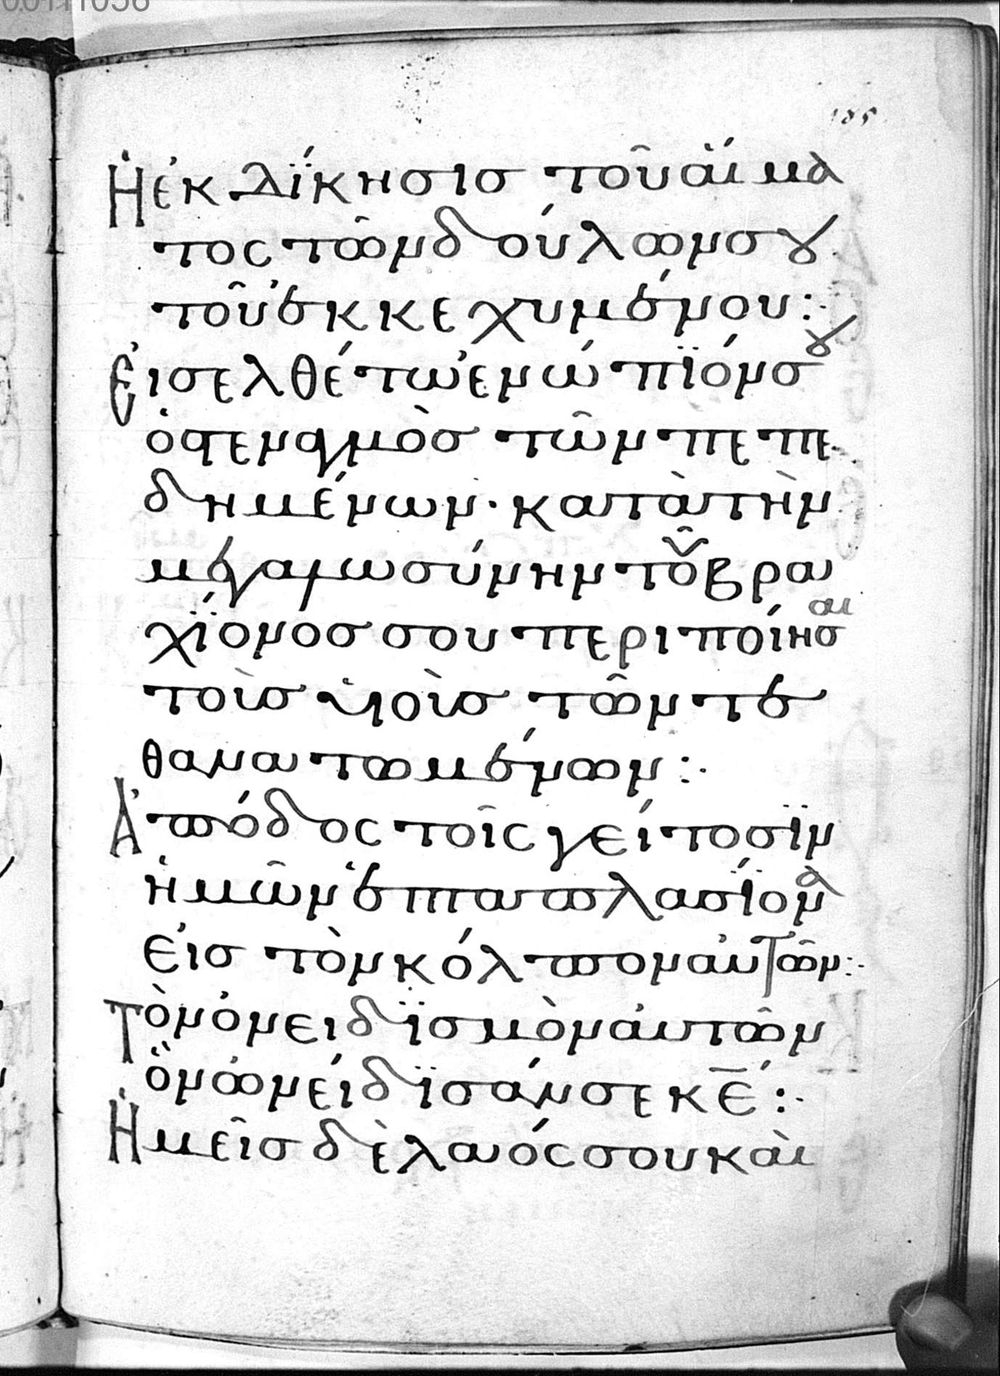 00111056
185
Ἡ ἐκδίκησις τοῦ αἵμα
τος τῶν δούλων σου
τοῦ ἐκκεχυμένου:·
Εἰσελθέτω ἐνώπϊόν σου
ὁ στεναγμὸσ τῶν πεπε
δημένων· κατὰ τὴν
μεγαλωσύνην τοῦ βρα
χΐονοσ σου περιποίησαι
τοὺσ υἱοὺσ τῶν τε
θανατωμένων:·
Ἀπόδος τοῖς γείτοσϊν
ἡμῶν ἑπταπλασΐονα
εἰσ τὸν κόλπον αὐτῶν:·
Τὸν ὀνειδϊσμὸν αὐτῶν
ὃν ὠνείδϊσάν σε κε:·
Ἡμεῖσ δὲ λαός σου καὶ